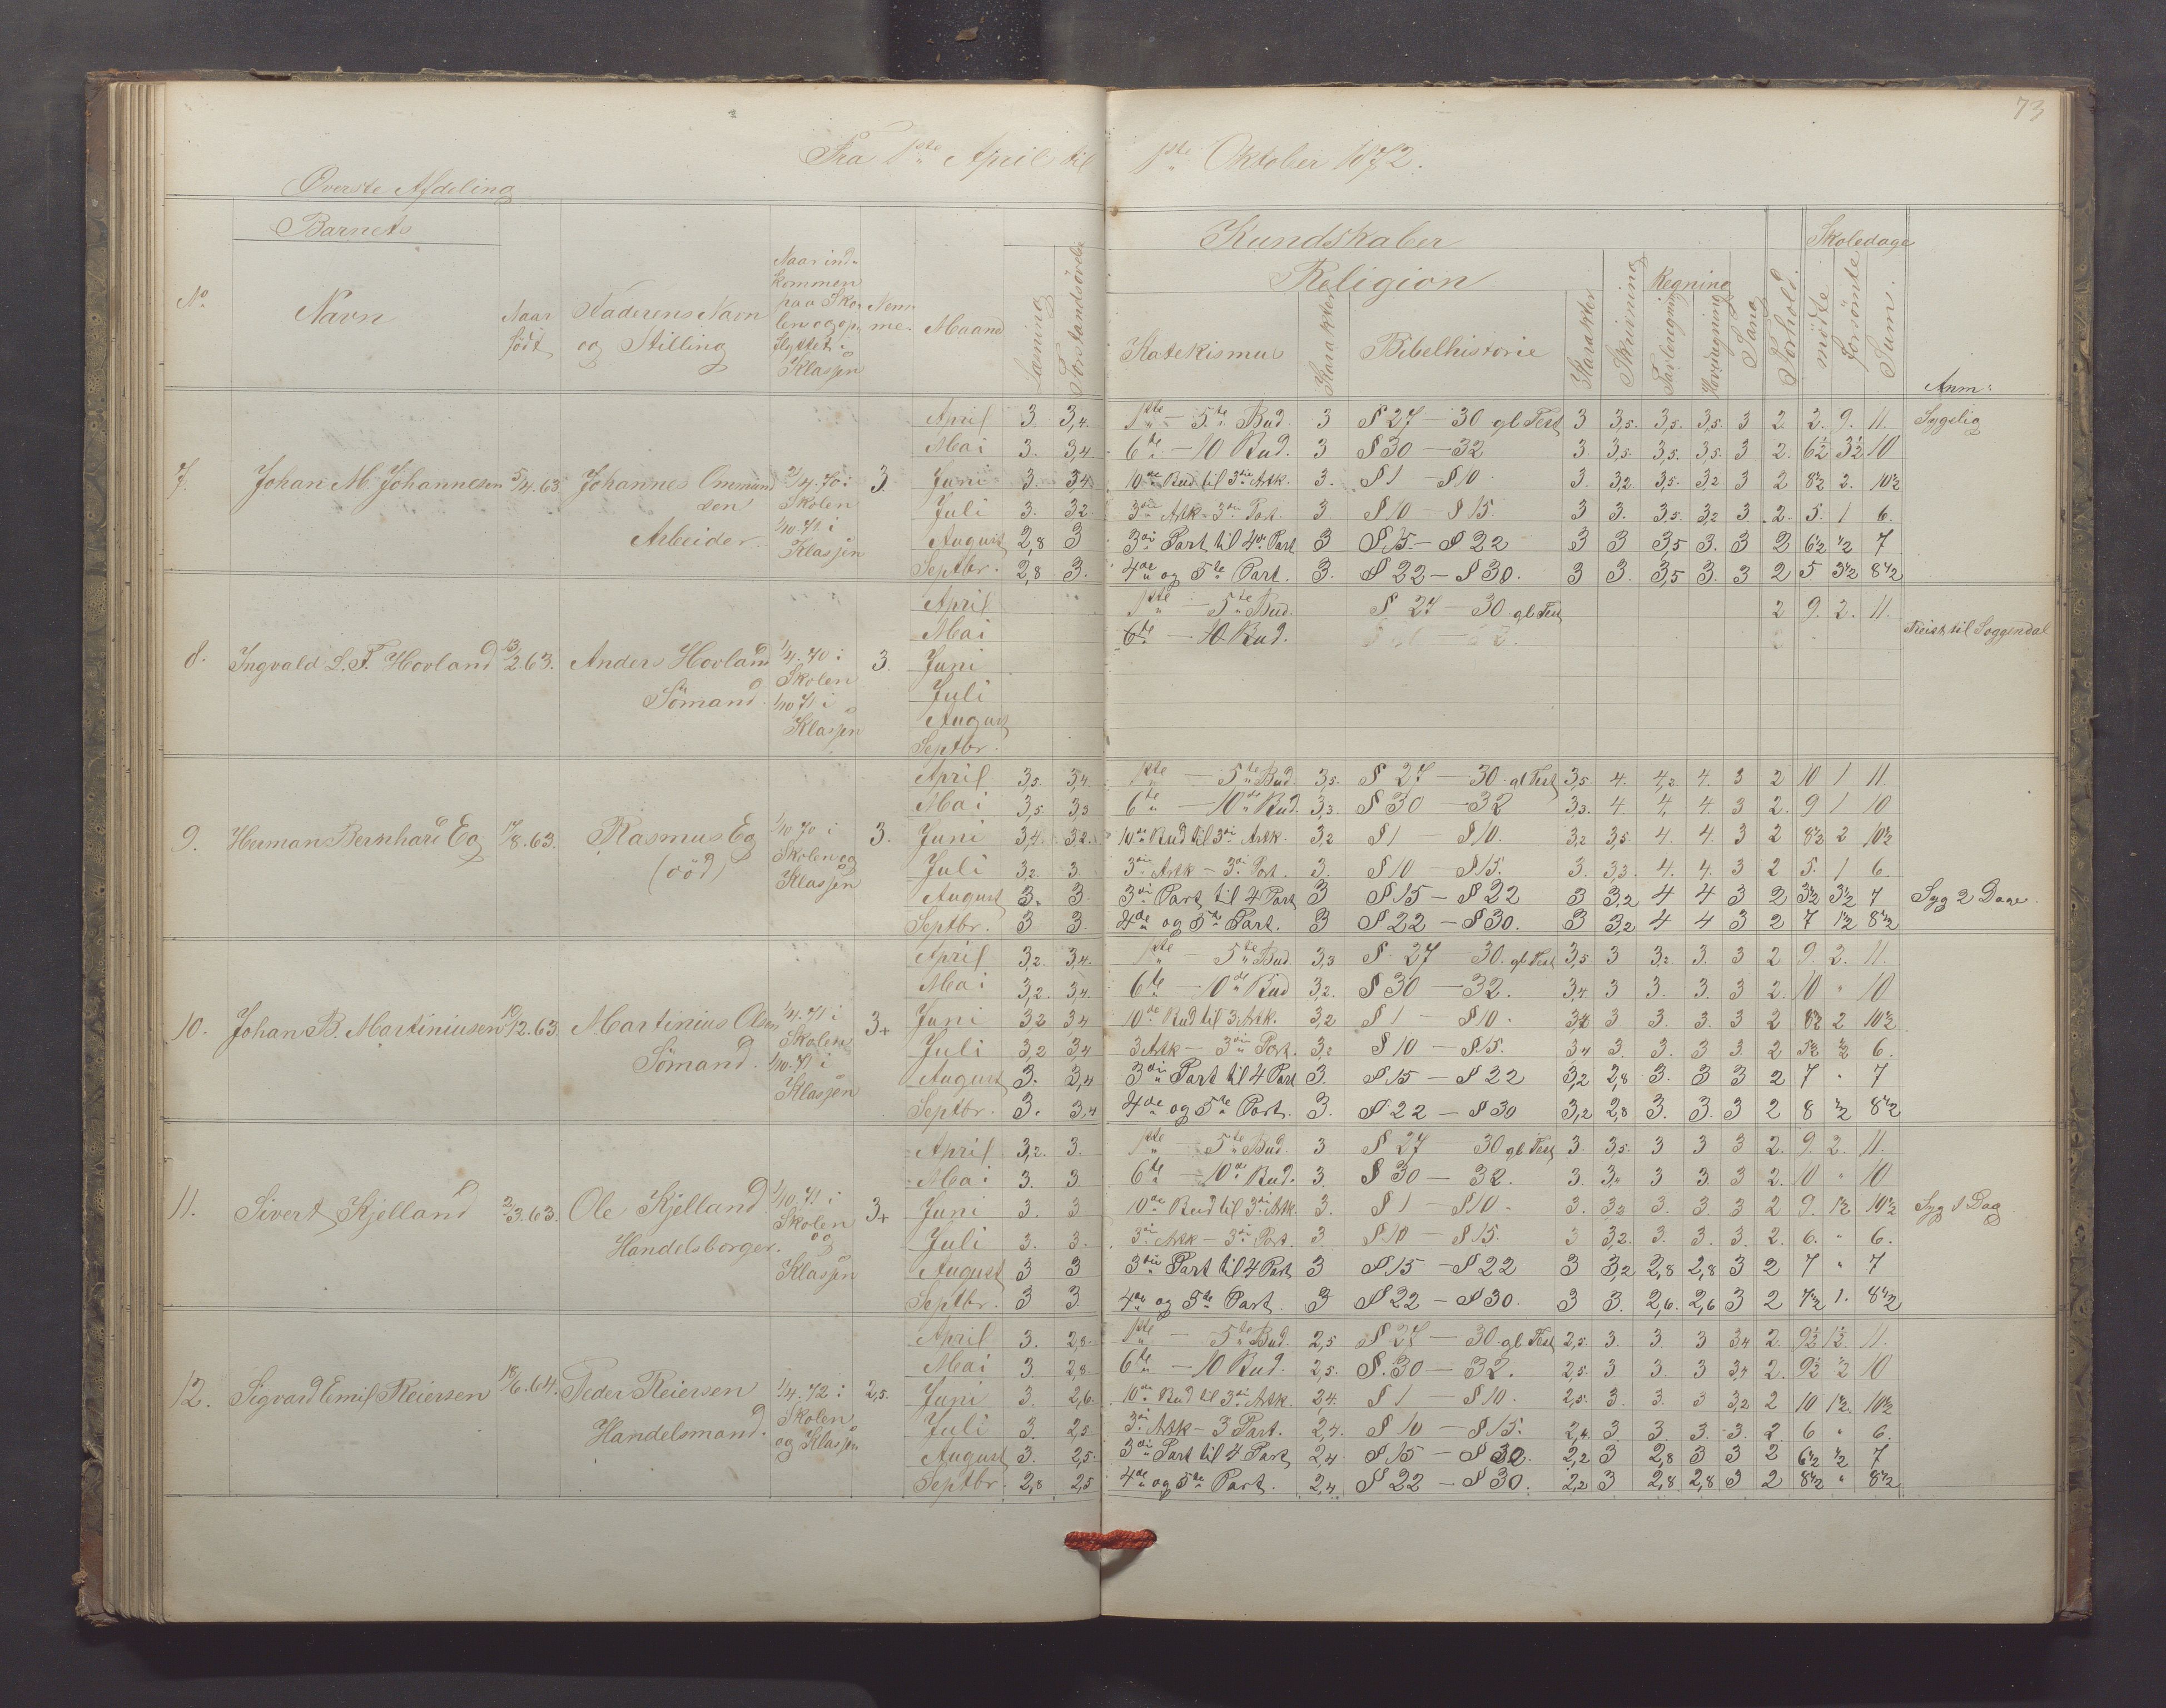 73
Fra 1ste April til 1ste Oktober 1872.
Øverste Afdeling
Barnets
Kundskaber
Skoledage
Religion
Regning
No
Navn
Naar født
Faderens Navn og Stilling
Naar ind-
kommen
paa Sko-
len og op-
flyttet i
Klassen
Maaned
Læsning
Forstandsøvelse
Katekismus
Karakter
Bibelhistorie
Karakter
Skrivning
Tavleregning
Hovedregning
Sang
Forhold.
mødte
Forsømte
Sum.
Anm:
April 3. 3,4. 1ste - 5te Bud. 3 § 27 - 30 gl Test 3 3,5. 3,5. 3,5. 3 2. 2. 9. 11. Sygelig
Mai 3. 3,4 6te - 10 Bud. 3 § 30 - 32 3. 3,5. 3,5. 3,5. 3 2. 6½ 3½ 10
7. Johan M Johannesen 5/4.63. Johannes Ommund 2/4.70 i 3. Juni 3 3,4 10de Bud til 3die Artk. 3. § 1 - § 10 3. 3,2 3,5. 3,2 3 2 8½ 2. 10½
sen Skolen Juli 3. 3,2. 3die Artk - 3die Part. 3 § 10 - § 15. 3 3. 3,5. 3,2 3 2. 5. 1 6.
Arbeider. 1/10.71 i August 2,8 3 3die Part til 4de Part 3 § 15 - § 22 3 3 3,5 3. 3 2 6½ ½ 7
Klassen Septbr. 2,8 3. 4de og 5te Part. 3. § 22 - § 30. 3 3. 3,5 3. 3 2 5 3½ 8½
April 1ste - 5te Bud. § 27 - 30 gl Test 2 9. 2. 11.
Mai 6te - 10 Bud. Reist til Soggendal
8. Ingvald S. T. Hovland 13/2.63. Anders Hovland 1/4.70 i 3. Juni
Skolen Juli
Sømand. 1/10 71 i August
Klassen Septbr.
April 3,5. 3,4 1ste - 5te Bud 3,5. § 27 - 30. gl Test 3,5. 4. 4,2. 4. 3 2 10 1 11.
Mai 3,5 3,3 6te - 10de Bud. 3,3. § 30 - 32 3,3. 4. 4, 4. 3 2. 9 1 10
9. Herman Bernhard Eg 17/8.63. Rasmus Eg 1/10 70 i 3. Juni 3,4. 3,2. 10de Bud til 3die Artk. 3,2 § 1 - § 10. 3,2 3,5 4. 4. 3 2 8½ 2 10½
(død) Skolen og Juli 3,2 3. 3die Artk - 3die Part. 3. § 10 - § 15. 3. 3,3. 4. 4. 3 2 5. 1 6.
Klassen August 3. 3 3die Part til 4 Part 3 § 15 - § 22 3 3,2 4 4 3 2 3½ 3½ 7 Syg 2 Dage.
Septbr. 3 3. 4de og 5te Part. 3 § 22 - § 30. 3 3,2 4 4 3 2 7 1½ 8½
April 3,2. 3,4. 1ste - 5te Bud 3,3 § 27 - 30. gl Test 3,5 3 3,2. 3. 3 2 9. 2. 11.
Mai 3,2. 3,4. 6te - 10de Bud 3,2. § 30 - 32. 3,4 3 3. 3. 3 2. 10 " 10
10. Johan B. Martiniusen 19/12.63. Martinius Olsen 1/4.71 i 3+ Juni 3,2 3,4 10de Bud til 3 Artk. 3,2 § 1 - § 10. 3,4 3 3. 3. 3 2 8½ 2 10½
Sømand. Skolen Juli 3,2 3,4 3 Artk - 3die Part. 3,2 § 10 - § 15. 3,4 3. 3. 3 3. 2 5½ ½ 6.
1/10.71 i August 3. 3,4 3die Part til 4 Part 3. § 15 - § 22 3,2 2,8 3. 3 3 2 7 " 7
Klassen Septbr. 3. 3,4 4de og 5te Part. 3. § 22 - § 30 3,2 2,8 3. 3. 3 2 8 ½ 8½
April 3,2. 3. 1ste - 5te Bud. 3 § 27 30 gl Test 3. 3,5. 3 3 3 2. 9. 2. 11.
Mai 3. 3 6te - 10de Bud. 3. § 30 - 32. 3. 3,4 3 3. 3 2. 10 " 10
11. Sivert Kjelland 2/3.63. Ole Kjelland 1/10.71 i 3+ Juni 3. 3 10de Bud til 3die Artk. 3. § 1 - § 10. 3. 3,3 3. 3. 3 2 9. 1½ 10½ Syg 1 Dag.
Handelsborger. Skolen og Juli 3. 3. 3die Artk - 3die Part. 3 § 10 - § 15. 3 3,2. 3. 3. 3. 2. 6. " 6.
Klassen August 3 3 3die Part til 4 Part 3 § 15 - § 22 3 3,2 2,8 2,8 3 2 7 " 7
Septbr. 3 3 4de og 5te Part. 3 § 22 - § 30. 3 3. 2,6. 2,6 3 2 7½ 1. 8½
April 3. 2,8. 1ste - 5te Bud. 2,5 § 27 - 30. gl Test 2,5. 3. 3. 3 3,4 2. 9½ 1½ 11.
Mai 3 2,8 6te - 10 Bud. 2,5. §. 30 - 32. 2,5. 3 3. 3 3,4 2. 9½ ½ 10
12. Sigvard Emil Reiersen 18/6.64. Peder Reiersen 1/4.72 i 2,5. Juni 3. 2,6. 10de Bud til 3die Artk. 2,4. § 1 - § 10. 2,5. 3. 3. 3 3,2 2 10 1½. 10½
Handelsmand. Skolen Juli 3. 2,5 3die Artk - 3 Part. 2,4. § 10 - § 15. 2,4. 3. 3. 3. 3. 2. 6 " 6.
og Klassen August 3. 2,5. 3die Part til 4 Part 2,4 § 15 - § 30. 2,2 3 2,8 3 3 2 6½ ½ 7
Septbr. 2,8 2,5 4de og 5te Part. 2,4 § 22 - § 30. 2,2 3 2,8 2,8 3 2 8½ " 8½